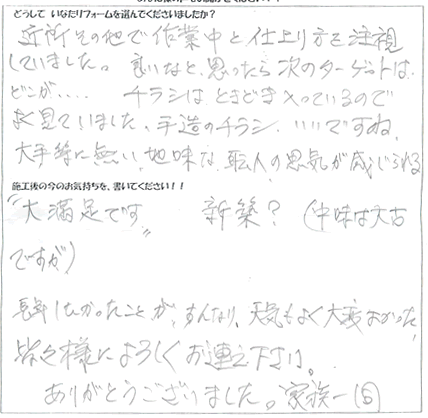 どうして いなたリフォームを選んでくださいましたか？
近所その他で作業中と仕上り方を注視
していました。良いなと、思ったら次のターゲットは、
どこが.... チラシはときどき入っているので
よく見ていました、手造のチラシ、いいですね、
大手等に無い、地味な、職人の意気が感じられる
施工後の今のお気持ちを、書いてください！！
"大満足です" 新築？ (中味は大古
ですが)
長年したかったことが、すんなり、天気もよく大変よかった、
皆々様によろしくお伝え下さい。
ありがとうございました。家族一同